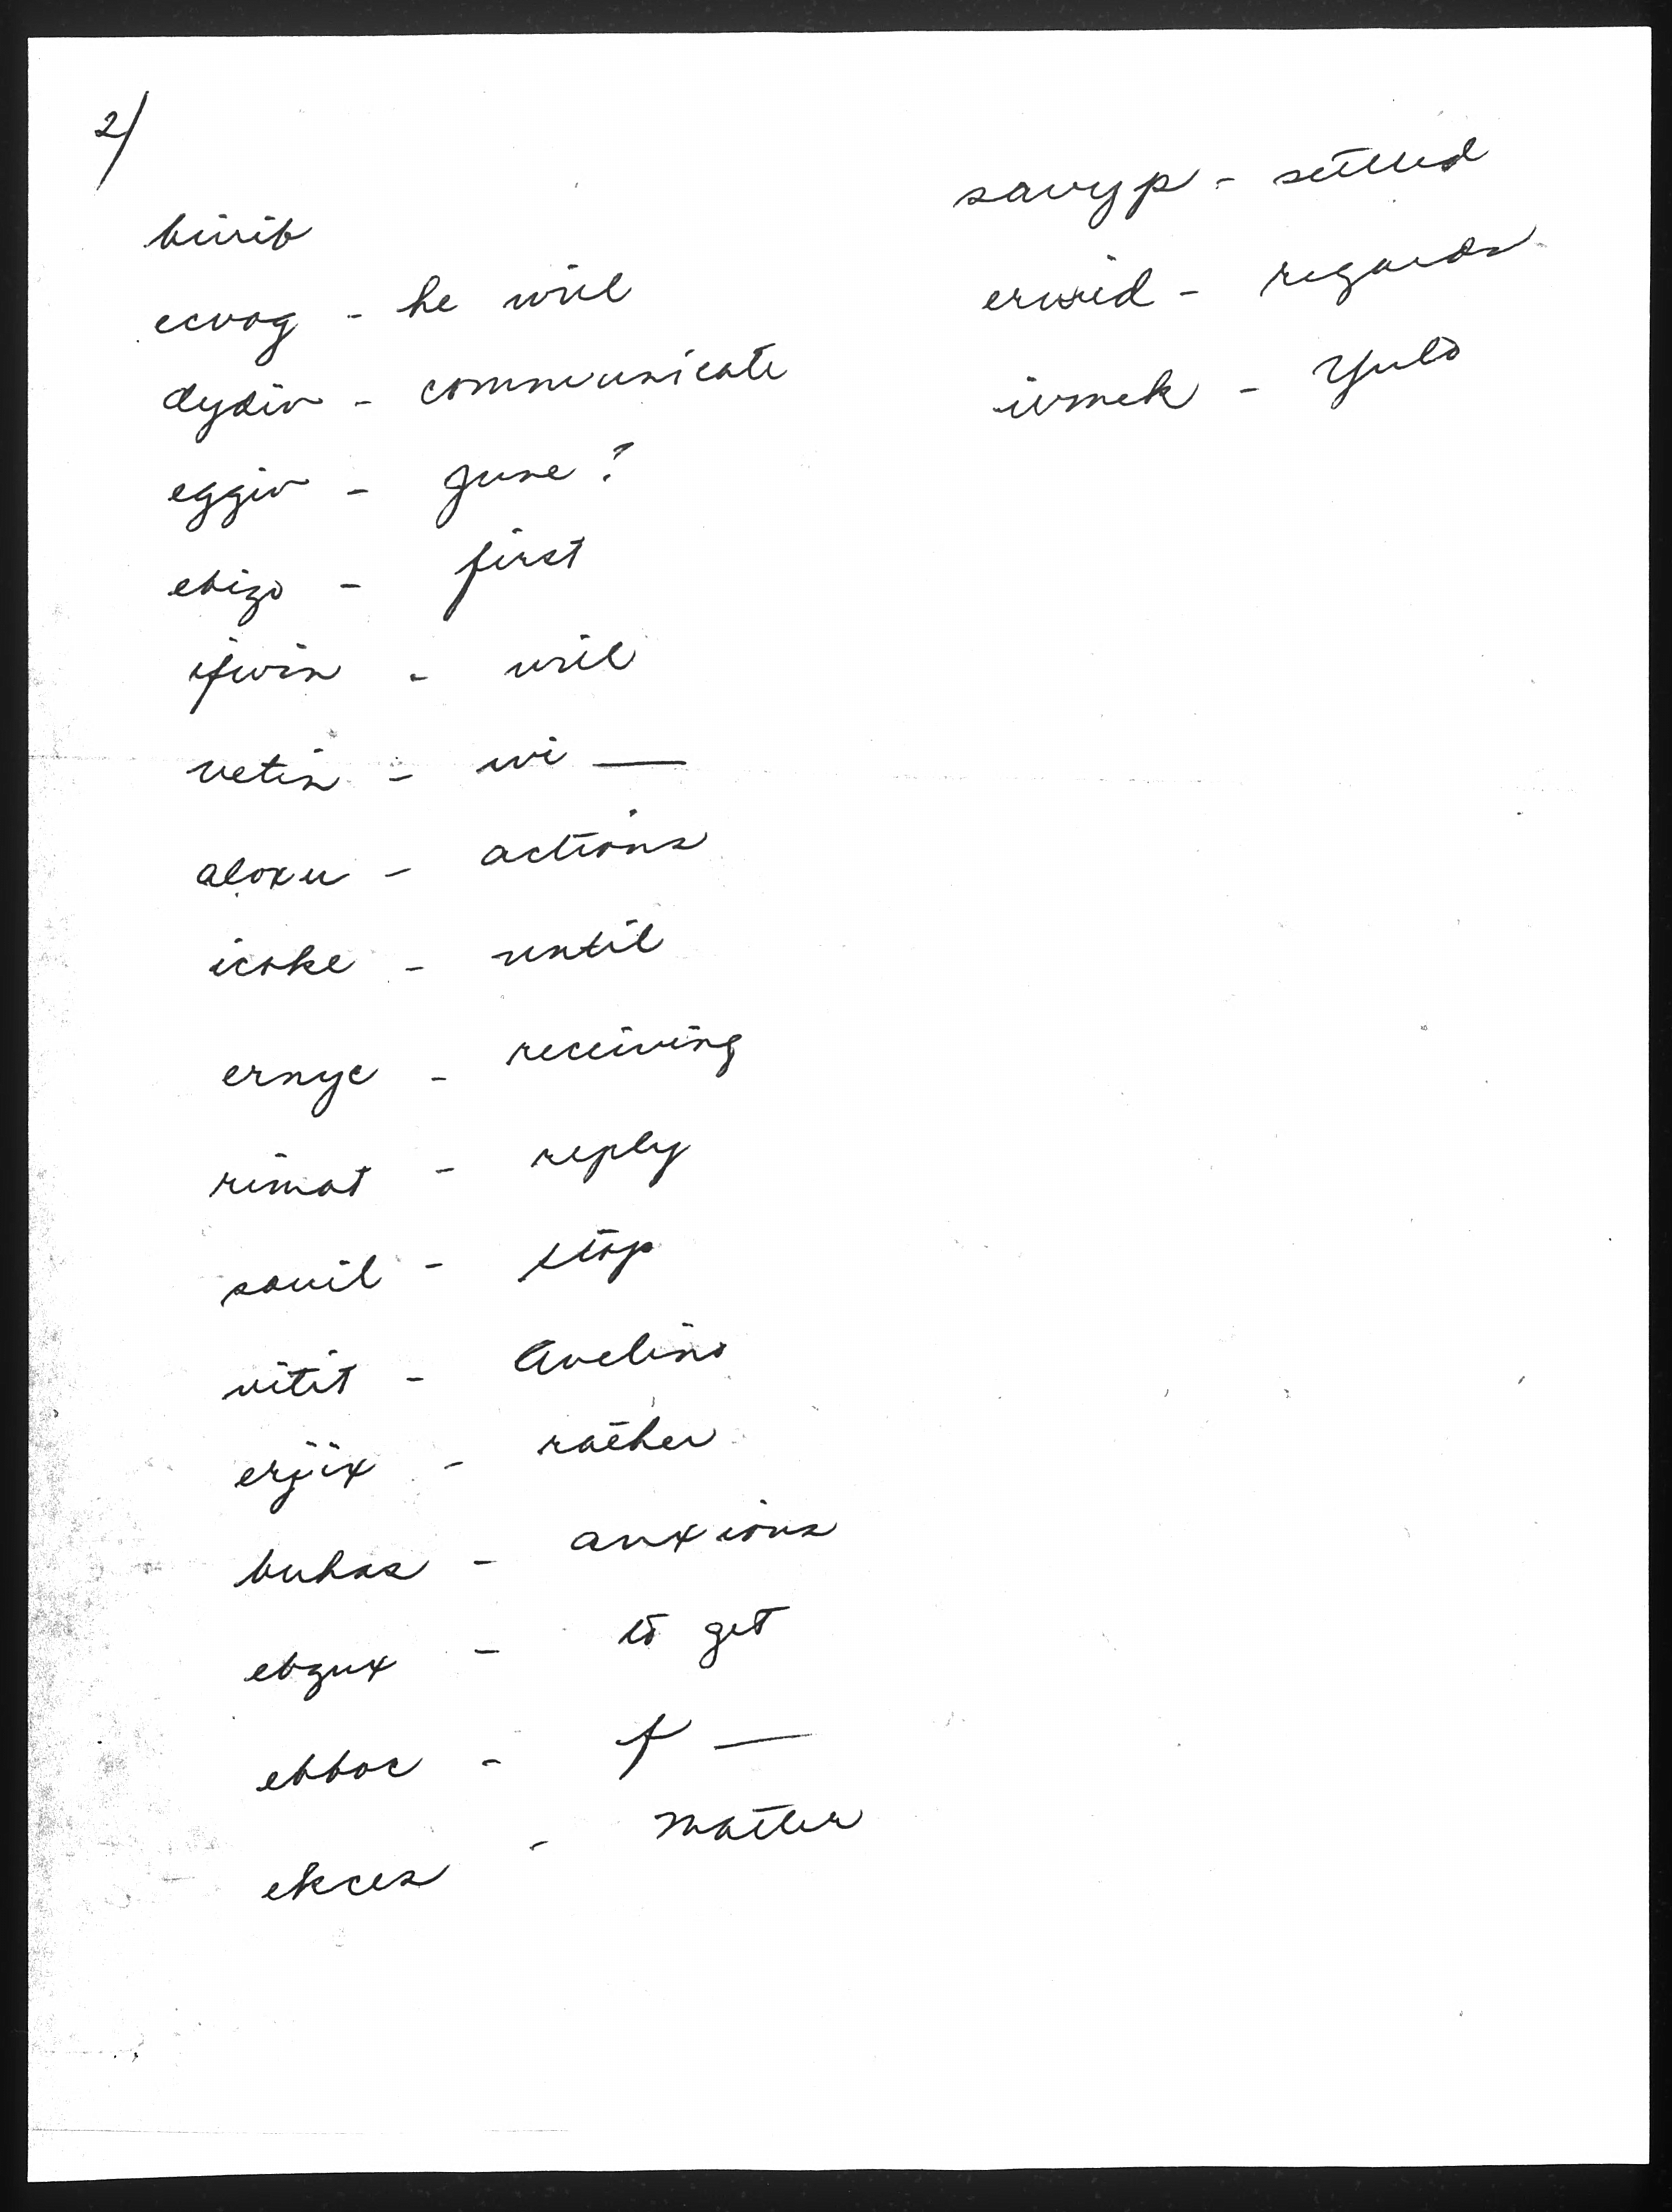 2/
birib
ecvog - he will
dydiv - communicate
eggiv - June?
ebizo - first
ifwin - will
vetin - wi —
aloxu - actions
icoke - until
ernyc - receiving
rimat - reply
sovil - stop
vitit - Avelino
erjix - rather
buhas - anxious
ebgux - to get
ebboc - f —
ekces - matter
savyp - settled
erwid - regards
ivmek - Yulo